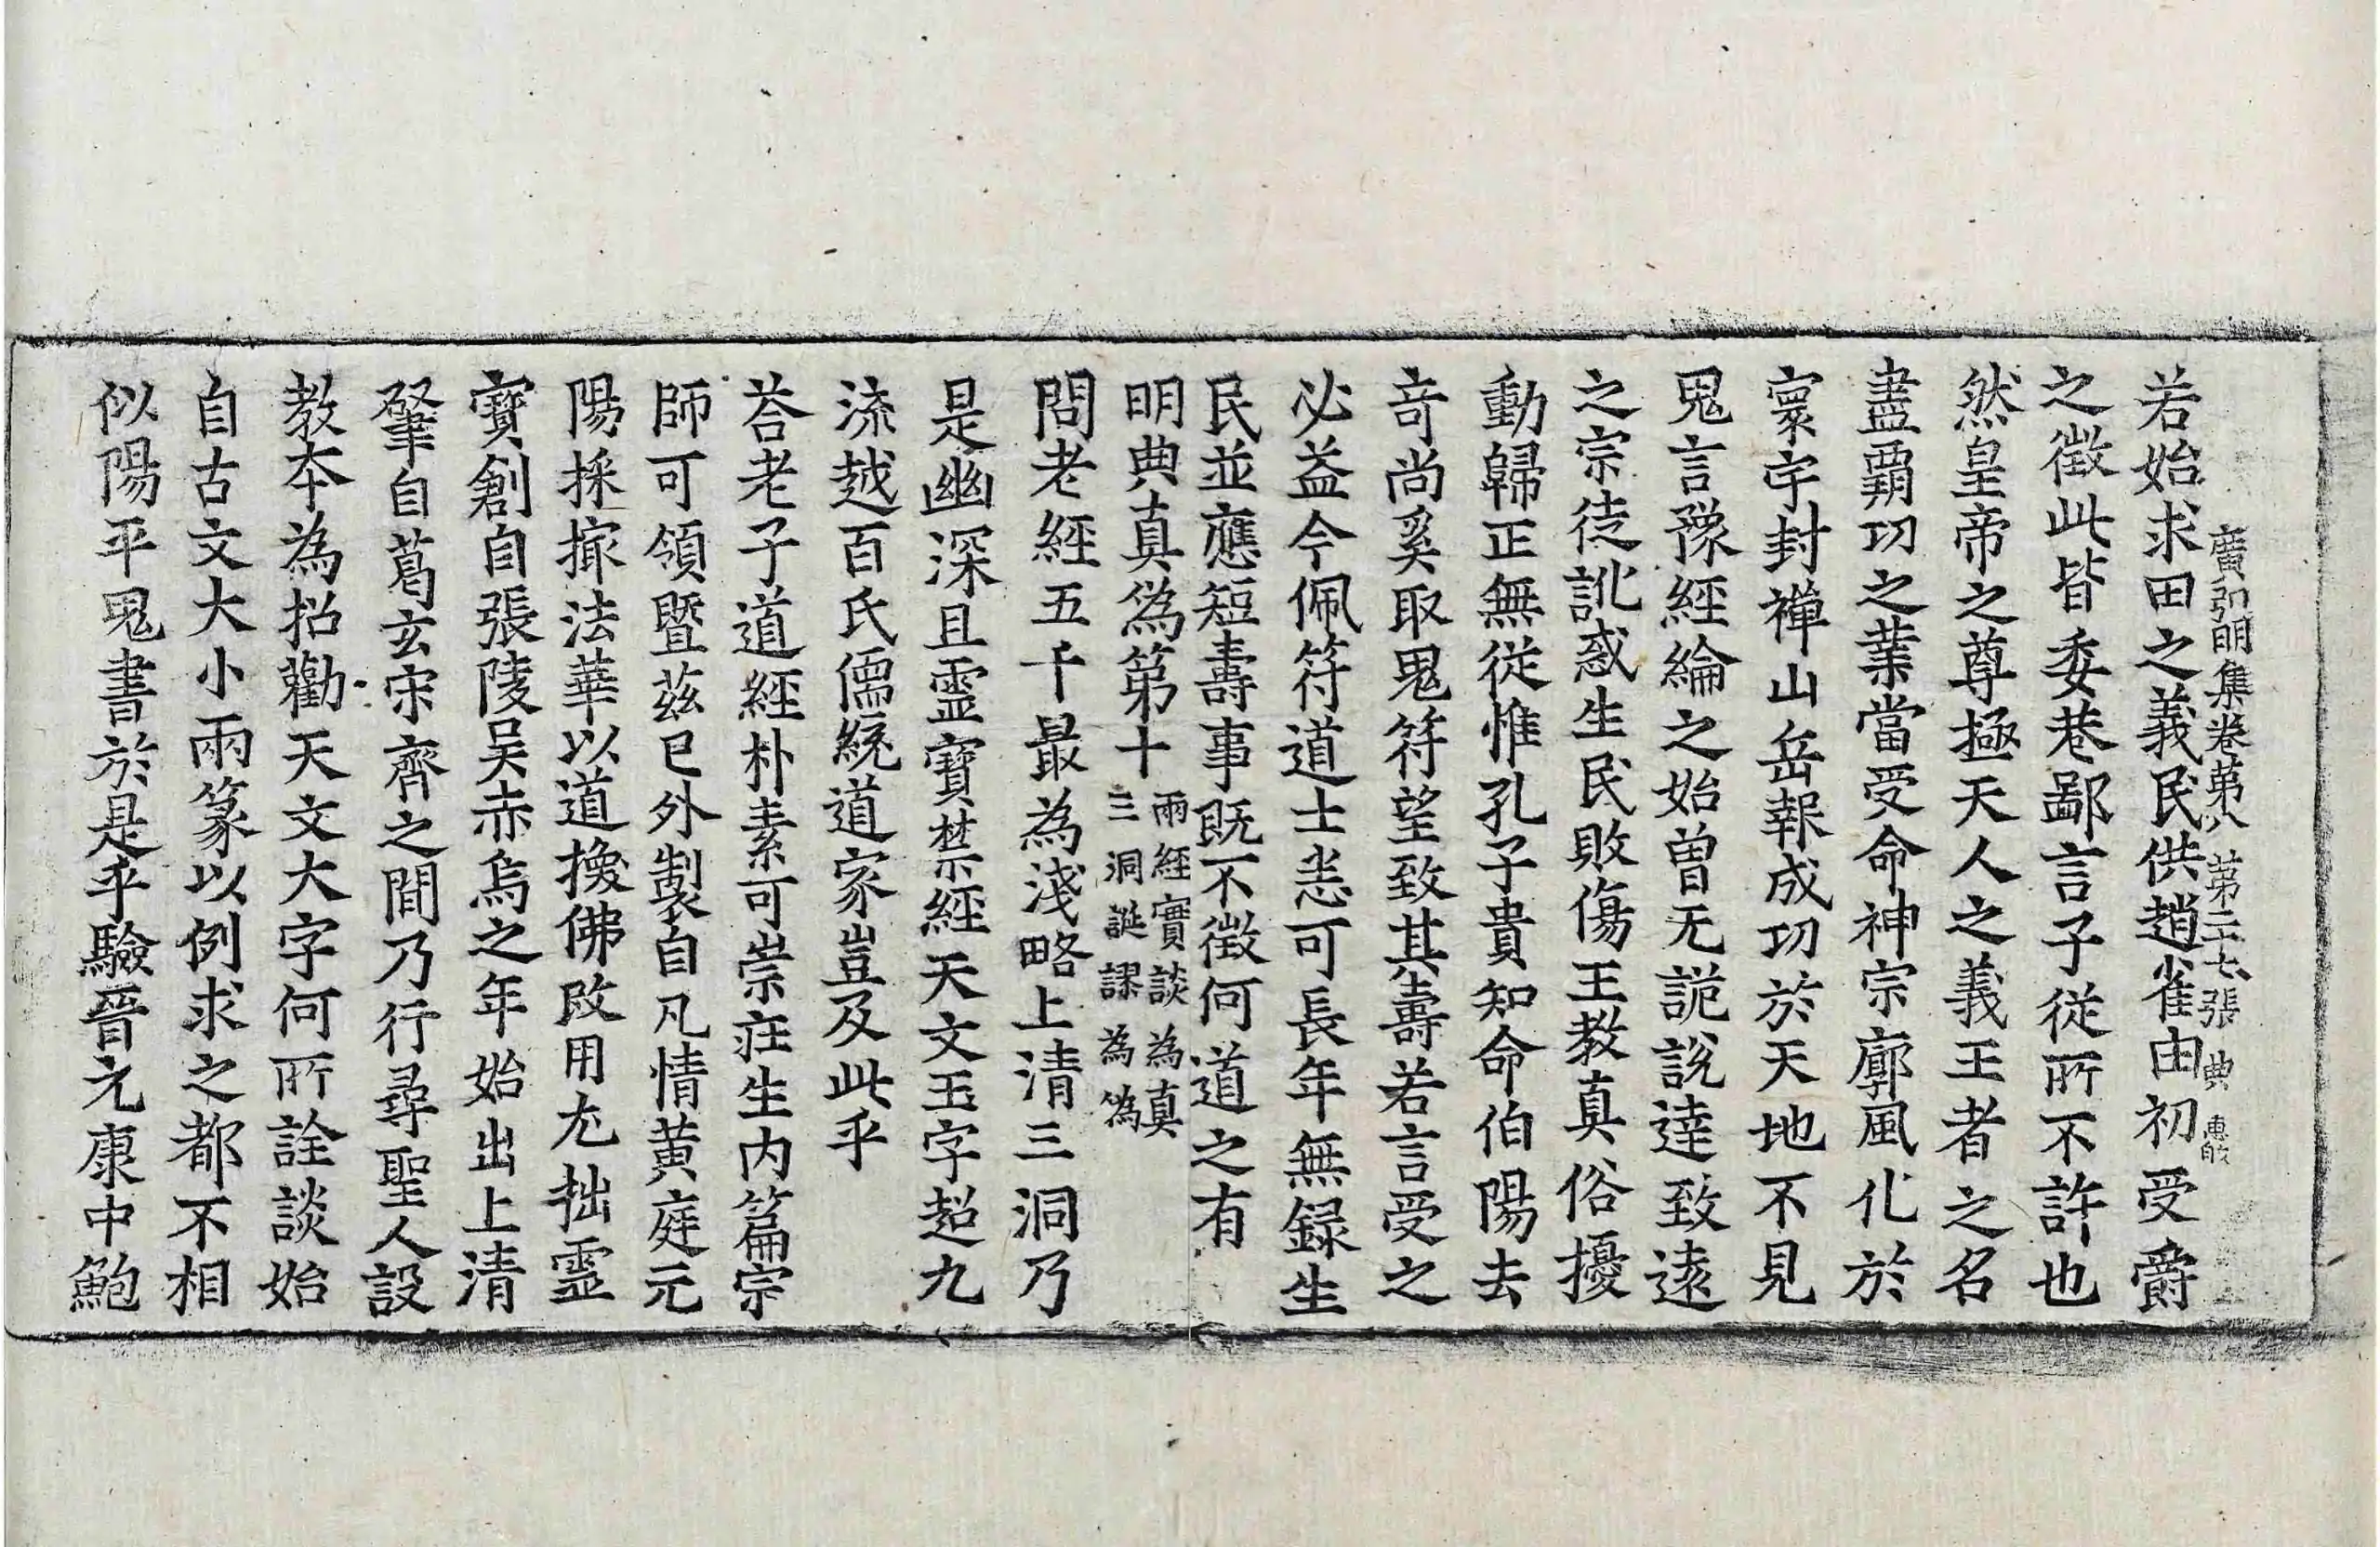 廣弘明集卷第八 第二十七張 典 惠的
若始求田之義民供趙雀由初受爵
之徵此皆委巷鄙言子從所不許也
然皇帝之尊極天人之義王者之名
盡覇功之業當受命神宗廓風化於
寰宇封禪山岳報成功於天地不見
鬼言豫經綸之始曾无詭說達致遠
之宗徒訛惑生民敗傷王教真俗擾
動歸正無從惟孔子貴知命伯陽去
竒尚奚取鬼符望致其壽若言受之
必益今佩符道士恙可長年無録生
民並應短壽事既不徵何道之有
明典真僞第十 兩經實談為真
三洞誕謬為偽
問老經五千最為淺略上清三洞乃
是幽深且霊寶禁經天文玉字超九
流越百氏儒統道家豈及此乎
荅老子道經朴素可崇莊生内篇宗
師可領暨茲已外製自凡情黄庭元
陽採撮法華以道換佛改用尤拙霊
寶創自張陵吴赤烏之年始出上清
肇自葛玄宋齊之間乃行尋聖人設
教本為招勸天文大字何所詮談始
自古文大小兩篆以例求之都不相
似陽平鬼書於是乎驗晉元康中鮑